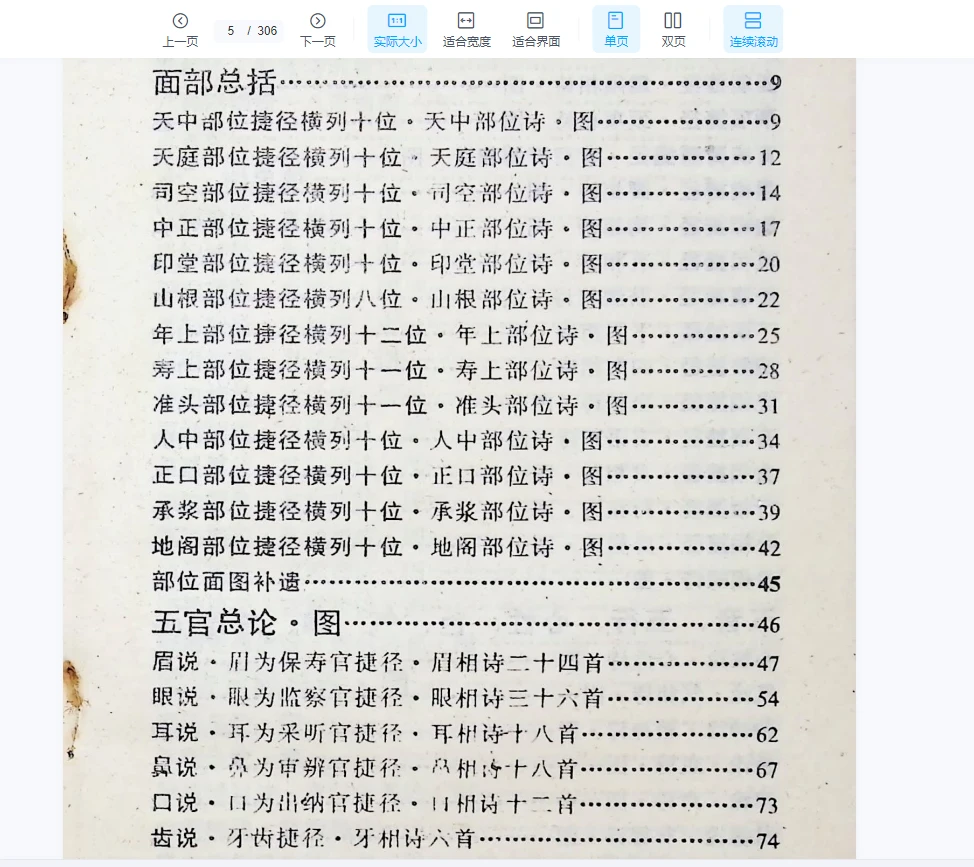 上一页 5 / 306 下一页 实际大小 适合宽度 适合界面 单页 双页 连续滚动
面部总括……9
天中部位捷径横列十位·天中部位诗·图……9
天庭部位捷径横列十位·天庭部位诗·图……12
司空部位捷径横列十位·司空部位诗·图……14
中正部位捷径横列十位·中正部位诗·图……17
印堂部位捷径横列十位·印堂部位诗·图……20
山根部位捷径横列八位·山根部位诗·图……22
年上部位捷径横列十二位·年上部位诗·图……25
寿上部位捷径横列十一位·寿上部位诗·图……28
准头部位捷径横列十一位·准头部位诗·图……31
人中部位捷径横列十位·人中部位诗·图……34
正口部位捷径横列十位·正口部位诗·图……37
承浆部位捷径横列十位·承浆部位诗·图……39
地阁部位捷径横列十位·地阁部位诗·图……42
部位面图补遗……45
五官总论·图……46
眉说·眉为保寿官捷径·眉相诗二十四首……47
眼说·眼为监察官捷径·眼相诗三十六首……54
耳说·耳为采听官捷径·耳相诗十八首……62
鼻说·鼻为审辨官捷径·鼻相诗十八首……67
口说·口为出纳官捷径·口相诗十二首……73
齿说·牙齿捷径·牙相诗六首……74